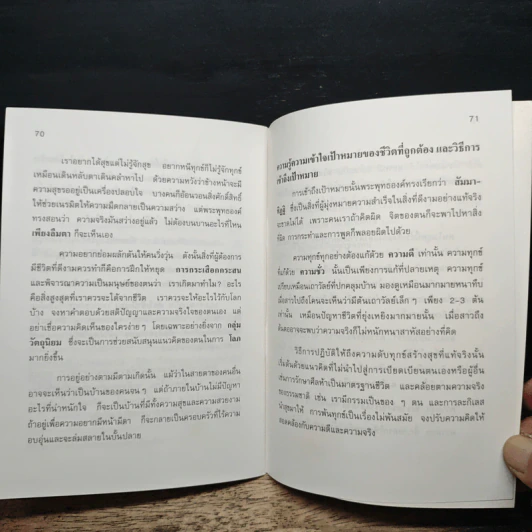 70
เราอยากได้สุขแต่ไม่รู้จักสุข อยากหนีทุกข์ก็ไม่รู้จักทุกข์
เหมือนเดินหลับตาเดินคลำหาไป ด้วยความหวังว่าข้างหน้าจะมี
ความสุขรออยู่เป็นเครื่องปลอบใจ บางคนก็อ้อนวอนสิ่งศักดิ์สิทธิ์
ให้ช่วยเนรมิตให้ความมืดกลายเป็นความสว่าง แต่พระพุทธองค์
ทรงสอนว่า ความจริงมันสว่างอยู่แล้ว ไม่ต้องบนบานอะไรที่ไหน
เพียงลืมตา ก็จะเห็นเอง
ความอยากย่อมผลักดันให้คนวิ่งวุ่น ดังนั้นสิ่งที่ผู้ต้องการ
มีชีวิตที่ดีงามควรทำก็คือการฝึกให้หยุด การกระเสือกกระสน
และพิจารณาความเป็นมนุษย์ของตนว่า เราเกิดมาทำไม? อะไร
คือสิ่งสูงสุดที่เราควรจะได้จากชีวิต เราควรจะให้อะไรไว้กับโลก
บ้าง จงหาคำตอบด้วยสติปัญญาและความจริงใจของตนเอง แต่
อย่าเชื่อความคิดเห็นของใครง่าย ๆ โดยเฉพาะอย่างยิ่งจาก กลุ่ม
วัตถุนิยม ซึ่งจะเป็นการช่วยสนับสนุนแนวคิดของตนในการ โลภ
มากยิ่งขึ้น
การอยู่อย่างต่ำตามมีตามเกิดนั้น แม้ว่าในสายตาของคนอื่น
อาจจะเห็นว่าเป็นบ้านของคนจน ๆ แต่ถ้าภายในบ้านไม่มีปัญหา
อะไรที่น่าหนักใจ ก็จะเป็นบ้านที่มีทั้งความสุขและความสวยงาม
ถ้าอยู่เพื่อความอยากมีหน้ามีตา ก็จะกลายเป็นครอบครัวที่ไร้ความ
อบอุ่นและจะล่มสลายในบั้นปลาย
71
ความรู้ความเข้าใจเป้าหมายของชีวิตที่ถูกต้อง และวิธีการ
เข้าถึงเป้าหมาย
การเข้าถึงเป้าหมายนั้นพระพุทธองค์ทรงเรียกว่า สัมมา-
ทิฏฐิ ซึ่งเป็นสิ่งที่ผู้มุ่งหมายความสำเร็จในสิ่งที่ดีงามอย่างแท้จริง
จะขาดไม่ได้ เพราะคนเราถ้าคิดผิด จิตของตนก็จะพาไปหาสิ่ง
ที่ผิด การกระทำและการพูดก็พลอยผิดไปด้วย
ความทุกข์ทุกอย่างต้องแก้ด้วย ความดี เท่านั้น ความทุกข์
ที่แก้ด้วย ความชั่ว นั้นเป็นเพียงการแก้ที่ปลายเหตุ ความทุกข์
เปรียบเหมือนเถาวัลย์ที่ปกคลุมบ้าน มองดูเหมือนมากมายหนาทึบ
เมื่อสาวไปถึงโคนจะเห็นว่ามีต้นเถาวัลย์เล็ก ๆ เพียง 2-3 ต้น
เท่านั้น เหมือนปัญหาชีวิตที่ยุ่งเหยิงมากมายนั้น เมื่อสาวถึง
ต้นตออาจจะพบว่าความจริงก็ไม่หนักหนาสาหัสอย่างที่คิด
วิธีการปฏิบัติให้ถึงความดับทุกข์สร้างสุขที่แท้จริงนั้น
เริ่มต้นด้วยแนวคิดที่ไม่นำไปสู่การเบียดเบียนตนเองหรือผู้อื่น
เช่นการรักษาศีลห้าเป็นมาตรฐานชีวิต และคล้อยตามความจริง
ของธรรมชาติ เช่น เรามีกรรมเป็นของ ๆ ตน และการละกิเลส
นำสุขมาให้ การพ้นทุกข์เป็นเรื่องไม่พ้นสมัย จงปรับความคิดให้
สอดคล้องกับความดีและความจริง